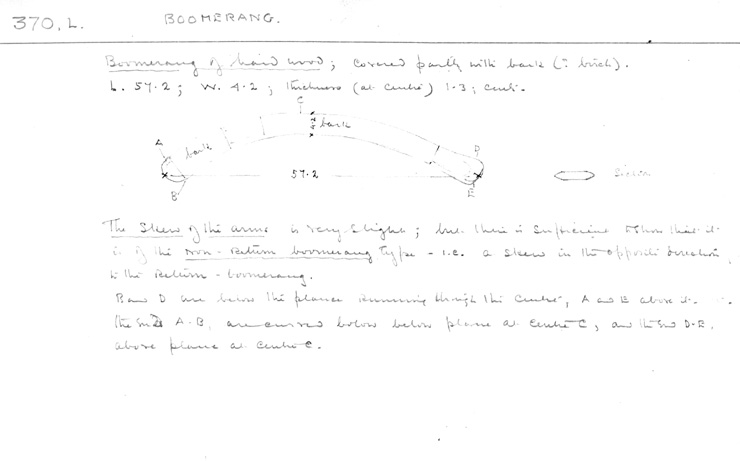 370, L.
BOOMERANG.
Boomerang of hard wood; covered partly with bark (? birch).
L. 57.2; W. 4.2; thickness (at centre) 1.3; cent.
C
bark
4.2
A
bark
D
57.2
B
E
Section
The Skew of the arms is very slight; but there is sufficient to show that it
is of the Non-Return boomerang type - i.e. a skew in the opposite direction,
to the Return-boomerang.
B and D are below the plane running through the centre, A and E above it.
the end A-B, are curved below plane at centre C, and the end D-E,
above plane at centre C.